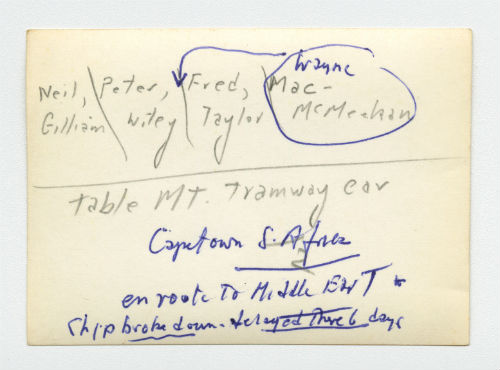 Wayne
Neil, Peter, Fred, Mac-
Gilliam Wiley Taylor McMeekan
Table MT. Tramway car
Capetown S. Africa
en route to Middle East
Ship broke down. delayed there 6 days